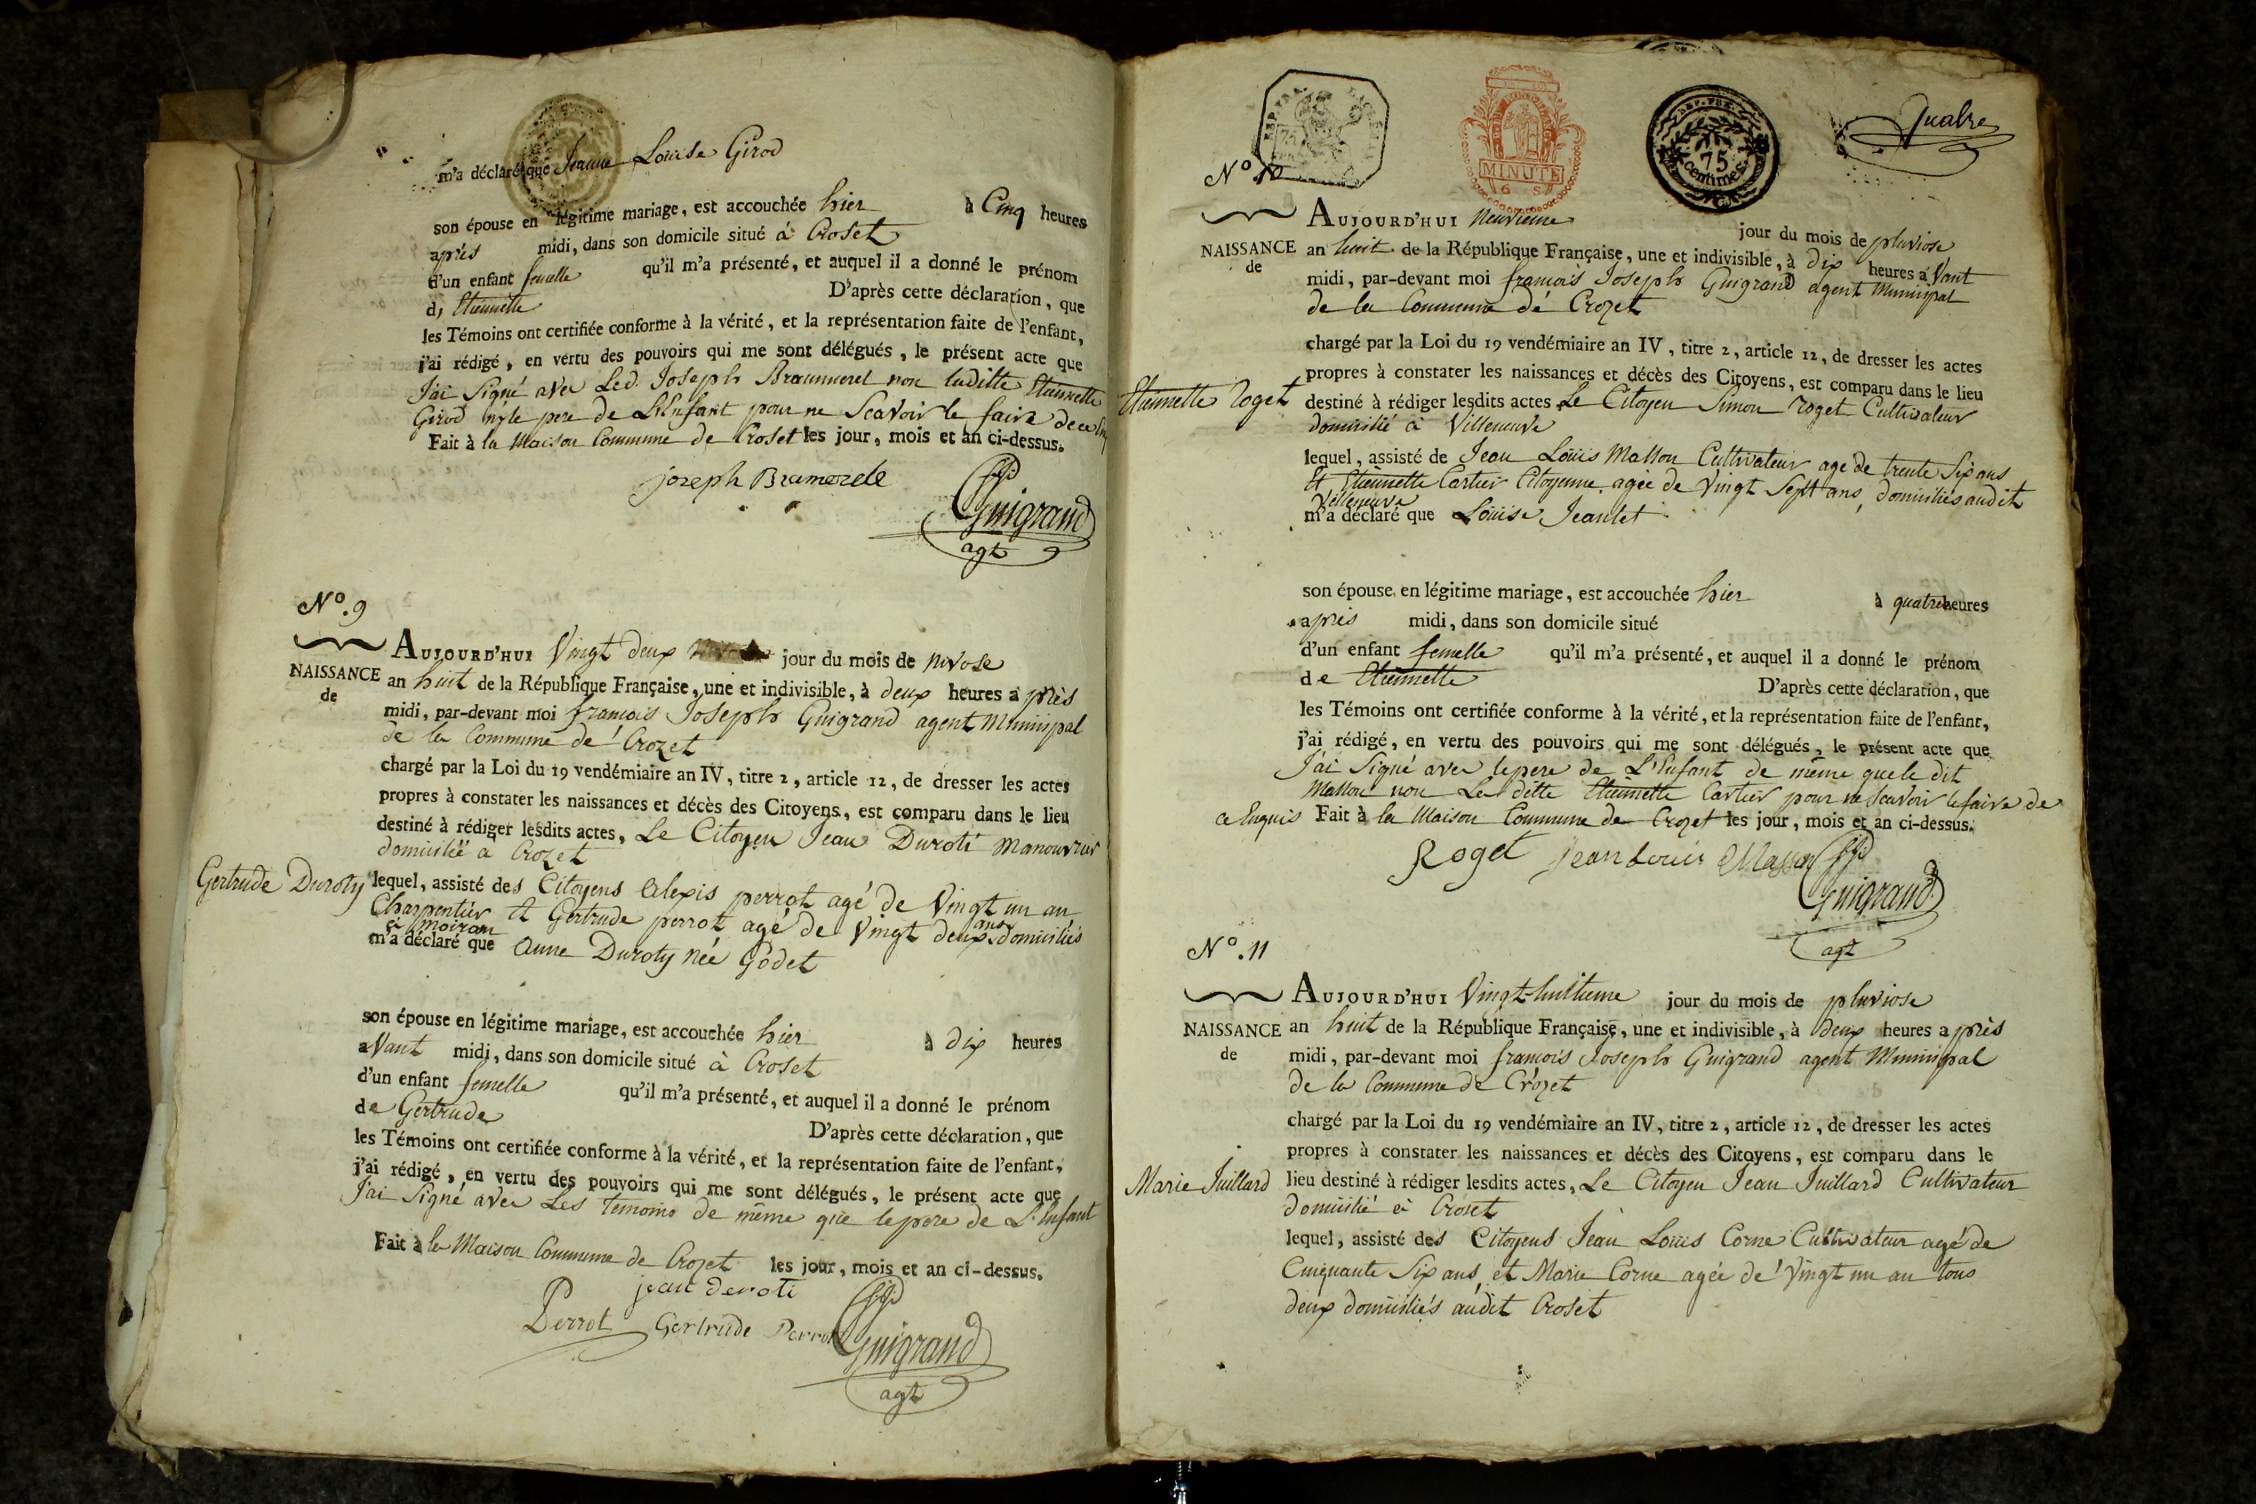 m'a déclaré que Jeanne Louise Girod
son épouse en légitime mariage, est accouchée hier à Cinq heures
après midi, dans son domicile situé à Croset
d'un enfant femelle qu'il m'a présenté, et auquel il a donné le prénom
d, Etiennette D'après cette déclaration, que
les Témoins ont certifiée conforme à la vérité, et la représentation faite de l'enfant,
j'ai rédigé, en vertu des pouvoirs qui me sont délégués, le présent acte que
J'ai Signé avec Led. Joseph non laditte Etiennette
Girod ny le pere de L'Enfant pour ne Scavoir le faire de ce
Fait à la Maison Commune de Croset les jour, mois et an ci-dessus.
joseph Bramerele
Guigrand
agt
N°. 9
AUJOURD'HUI Vingt deux jour du mois de nivose
NAISSANCE de
an huit de la République Française, une et indivisible, à deux heures après
midi, par-devant moi françois Joseph Guigrand agent Municipal
de la Commune de Crozet
chargé par la Loi du 19 vendémiaire an IV, titre 2, article 12, de dresser les actes
propres à constater les naissances et décès des Citoyens, est comparu dans le lieu
destiné à rédiger lesdits actes, Le Citoyen Jean Duroti Manouvrier
domicilié à Crozet
Gertrude Duroty
lequel, assisté des Citoyens Alexis perrot agé de Vingt un an
Charpentier et Gertrude perrot agé de Vingt deux ans domiciliés
à Moiran
m'a déclaré que Anne Duroty née Godet
son épouse en légitime mariage, est accouchée hier à dix heures
aVant midi, dans son domicile situé à Croset
d'un enfant femelle qu'il m'a présenté, et auquel il a donné le prénom
de Gertrude D'après cette déclaration, que
les Témoins ont certifiée conforme à la vérité, et la représentation faite de l'enfant,
j'ai rédigé, en vertu des pouvoirs qui me sont délégués, le présent acte que
J'ai Signé avec Les Temoins de même que le pere de L'Enfant
Fait à la Maison Commune de Crozet les jour, mois et an ci-dessus.
jean deroti
Perrot Gertrude Perrot
Guigrand
agt
Quatre
MINUTE
75
centimes
N° 10
AUJOURD'HUI Neuvieme jour du mois de pluviose
NAISSANCE de
an huit de la République Française, une et indivisible, à dix heures aVant
midi, par-devant moi françois Joseph Guigrand agent Municipal
de la Commune de Crozet
chargé par la Loi du 19 vendémiaire an IV, titre 2, article 12, de dresser les actes
propres à constater les naissances et décès des Citoyens, est comparu dans le lieu
Etiennette roget
destiné à rédiger lesdits actes, Le Citoyen Simon roget Cultivateur
domicilié à Villeneuve
lequel, assisté de Jean Louis Masson Cultivateur age de trente Six ans
Et Etiennette Cartier Citoyenne agée de Vingt Sept ans, domiciliés audit
Villeneuve
m'a déclaré que Louise Jeantet
son épouse en légitime mariage, est accouchée hier à quatre heures
après midi, dans son domicile situé
d'un enfant femelle qu'il m'a présenté, et auquel il a donné le prénom
de Etiennette D'après cette déclaration, que
les Témoins ont certifiée conforme à la vérité, et la représentation faite de l'enfant,
j'ai rédigé, en vertu des pouvoirs qui me sont délégués, le présent acte que
J'ai Signé avec le pere de L'Enfant de même que le dit
Masson non La ditte Etiennette Cartier pour ne Scavoir le faire de
ce Enquis Fait à la Maison Commune de Crozet les jour, mois et an ci-dessus.
Roget jean Louis Masson
Guigrand
agt
N°. 11
AUJOURD'HUI Vingt-huitieme jour du mois de pluviose
NAISSANCE de
an huit de la République Française, une et indivisible, à deux heures après
midi, par-devant moi françois Joseph Guigrand agent Municipal
de la Commune de Crozet
chargé par la Loi du 19 vendémiaire an IV, titre 2, article 12, de dresser les actes
propres à constater les naissances et décès des Citoyens, est comparu dans le
Marie Juillard
lieu destiné à rédiger lesdits actes, Le Citoyen Jean Juillard Cultivateur
domicilié à Croset
lequel, assisté des Citoyens Jean Louis Corne Cultivateur agé de
Cinquante Six ans, et Marie Corne agée de Vingt un an tous
deux domiciliés audit Croset